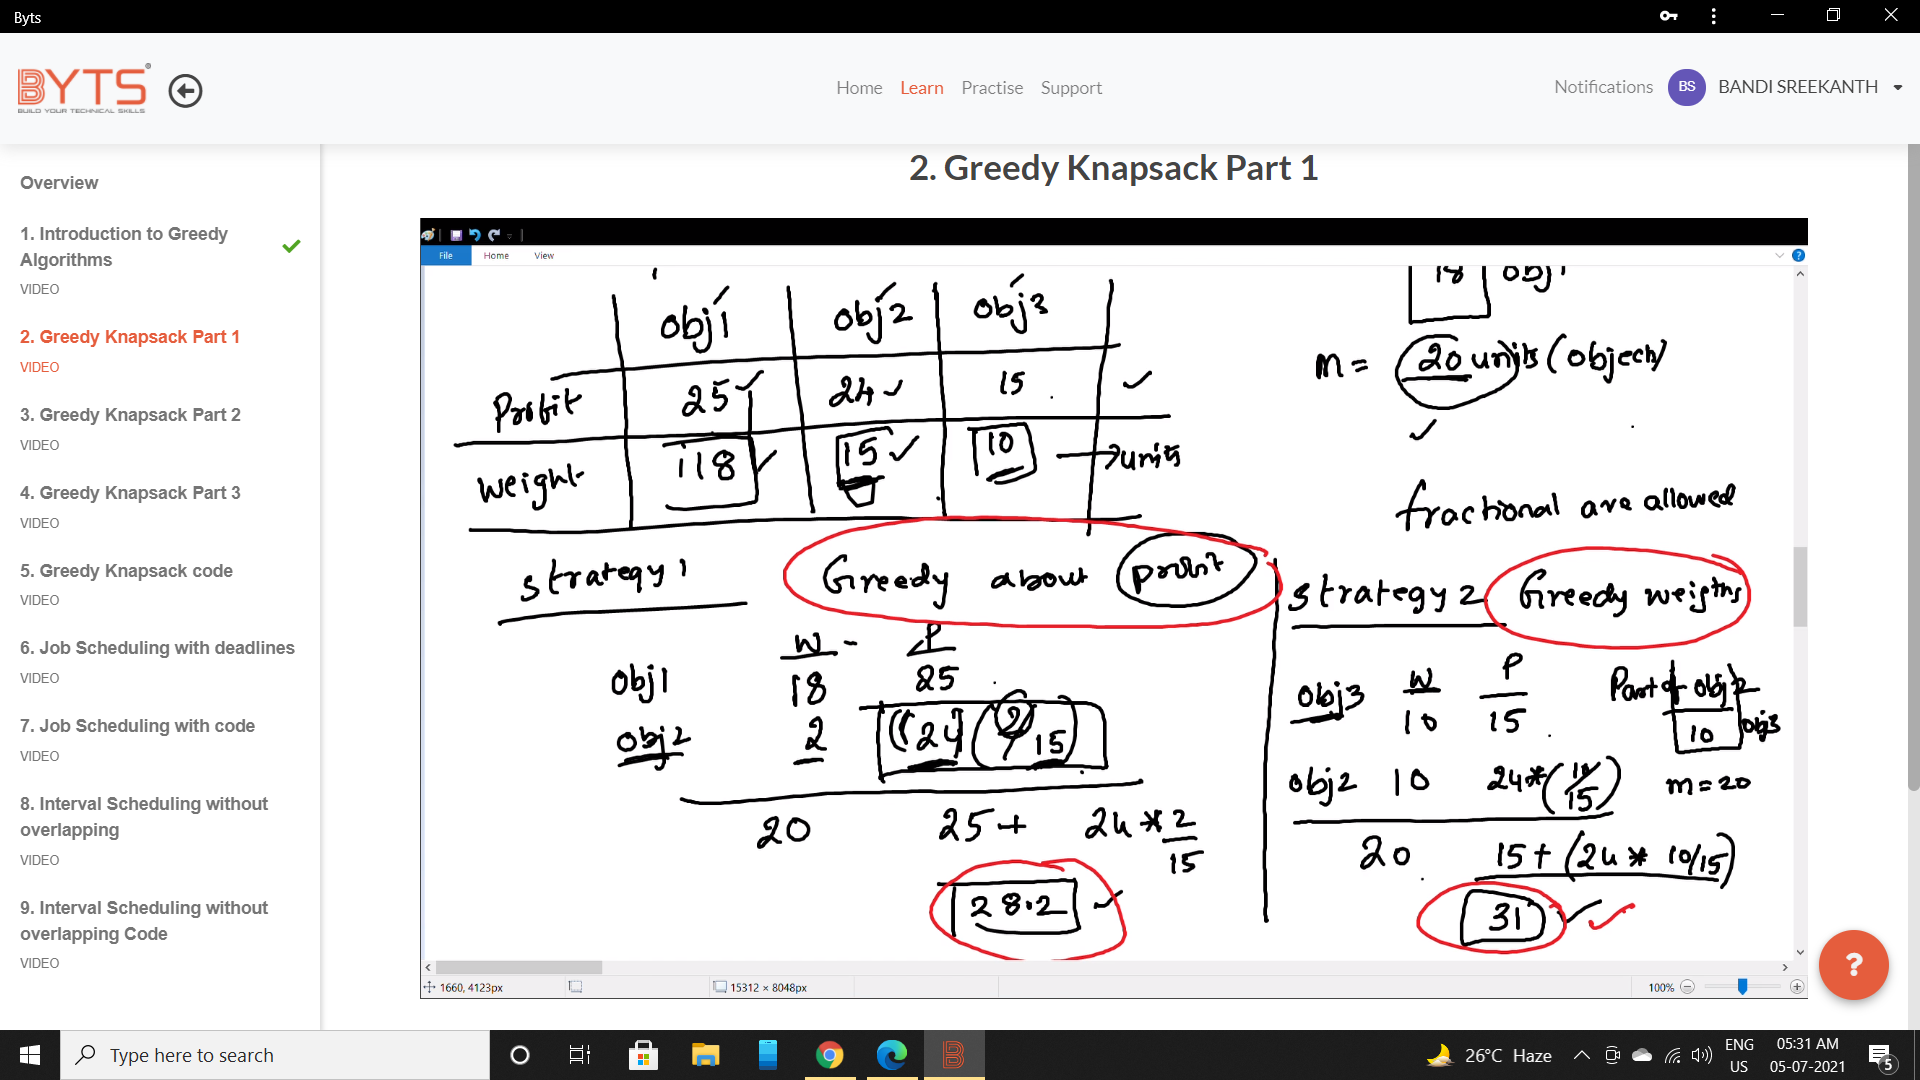 Byts
BYTS
BUILD YOUR TECHNICAL SKILLS
Home Learn Practise Support
Notifications BS BANDI SREEKANTH
Overview
1. Introduction to Greedy
Algorithms
VIDEO
2. Greedy Knapsack Part 1
VIDEO
3. Greedy Knapsack Part 2
VIDEO
4. Greedy Knapsack Part 3
VIDEO
5. Greedy Knapsack code
VIDEO
6. Job Scheduling with deadlines
VIDEO
7. Job Scheduling with code
VIDEO
8. Interval Scheduling without
overlapping
VIDEO
9. Interval Scheduling without
overlapping Code
VIDEO
2. Greedy Knapsack Part 1
File Home View
obj1 obj2 obj3
Profit 25 24 15
Weight 18 15 10 → units
18 obj1
m = 20 units (object)
fractional are allowed
Strategy 1 Greedy about profit
W - P
obj1 18 25
obj2 2 (24) (2/15)
20 25 + 24 * 2/15
28.2
Strategy 2 Greedy weights
W P
obj3 10 15
Part of obj2
10 obj3
obj2 10 24*(10/15) m = 20
20 15 + (24 * 10/15)
31
1660, 4123px
15312 × 8048px
100%
?
Type here to search
26°C Haze
ENG
US
05:31 AM
05-07-2021
5